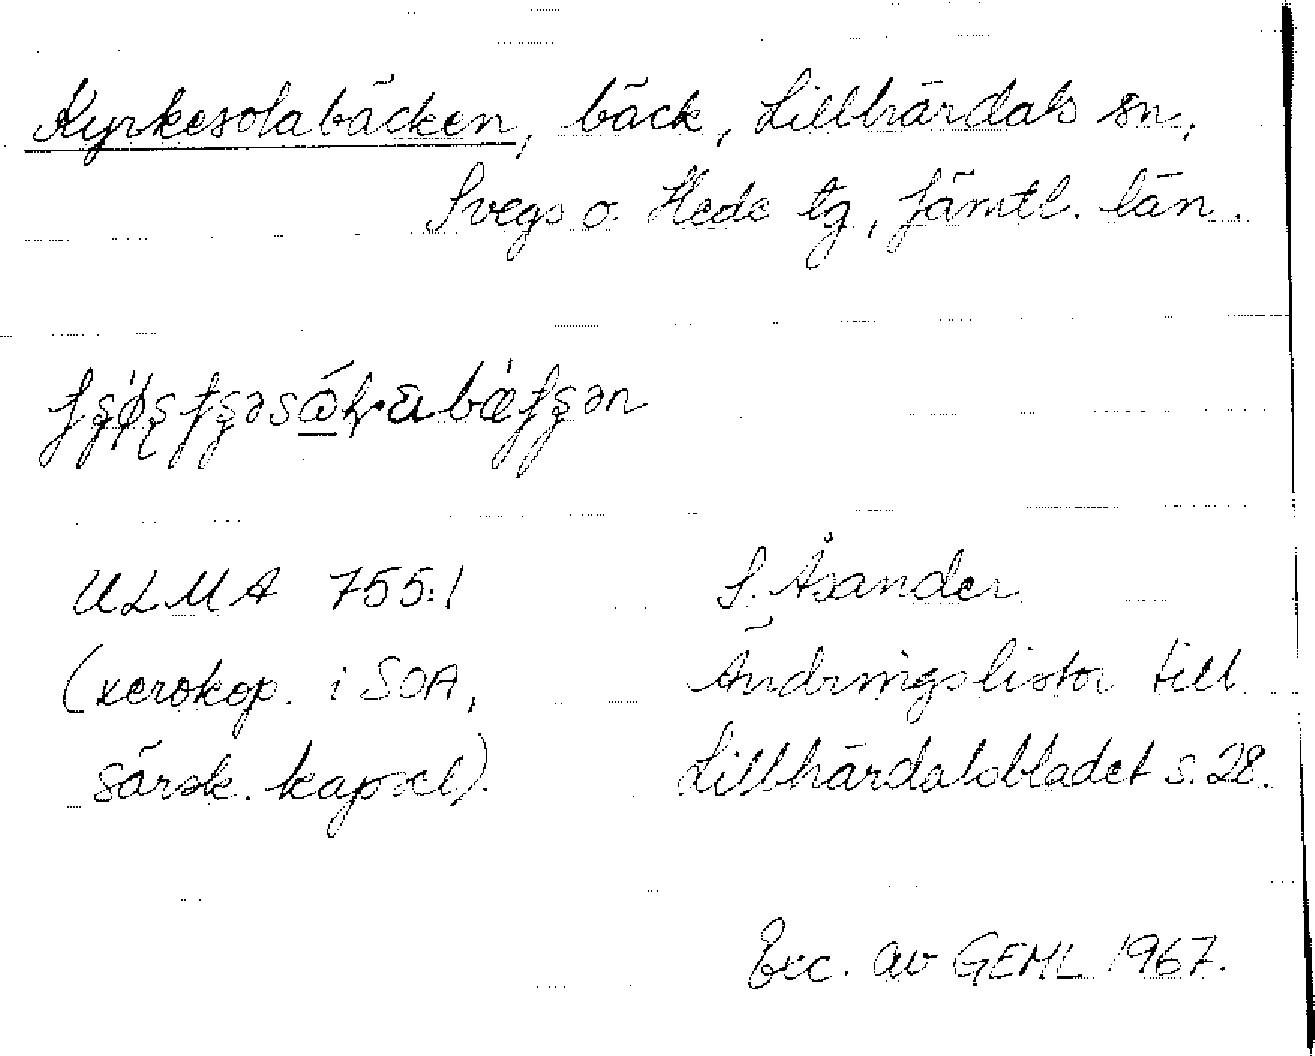 Kyrkesolabäcken, bäck, Lillhärdals sn,
Svegs o. Hede tg, Jämtl. län.
ULMA 755:1
S. Åsander
(xerokop. i SOA,
Ändringslistor till
särsk. kapsel).
Lillhärdalsbladet s. 28.
Exc. av GEML 1967.